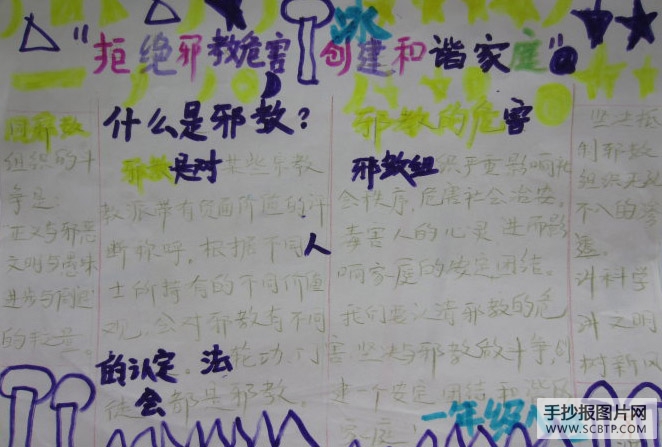 冰
"拒绝邪教危害 创建和谐家庭"
同邪教
组织的斗
争是:
正义与邪恶
文明与愚昧
进步与
的
什么是邪教?
邪教是对某些宗教
教派带有负面价值的评
断称呼,根据不同人
士所持有的不同价值
观,会对邪教有不同
的认定。法轮功、门
徒会都是邪教。
邪教的危害
邪教组织严重影响社
会秩序,危害社会治安。
毒害人的心灵,进而影
响家庭的安定团结。
我们要认清邪教的危
害,坚决与邪教做斗争,创
建一个安定团结和谐
家庭
坚决抵
制邪教
组织无孔
不入的渗
透。
讲科学
讲文明
树新风
一年级
手抄报图片网
WWW.SCBTP.COM